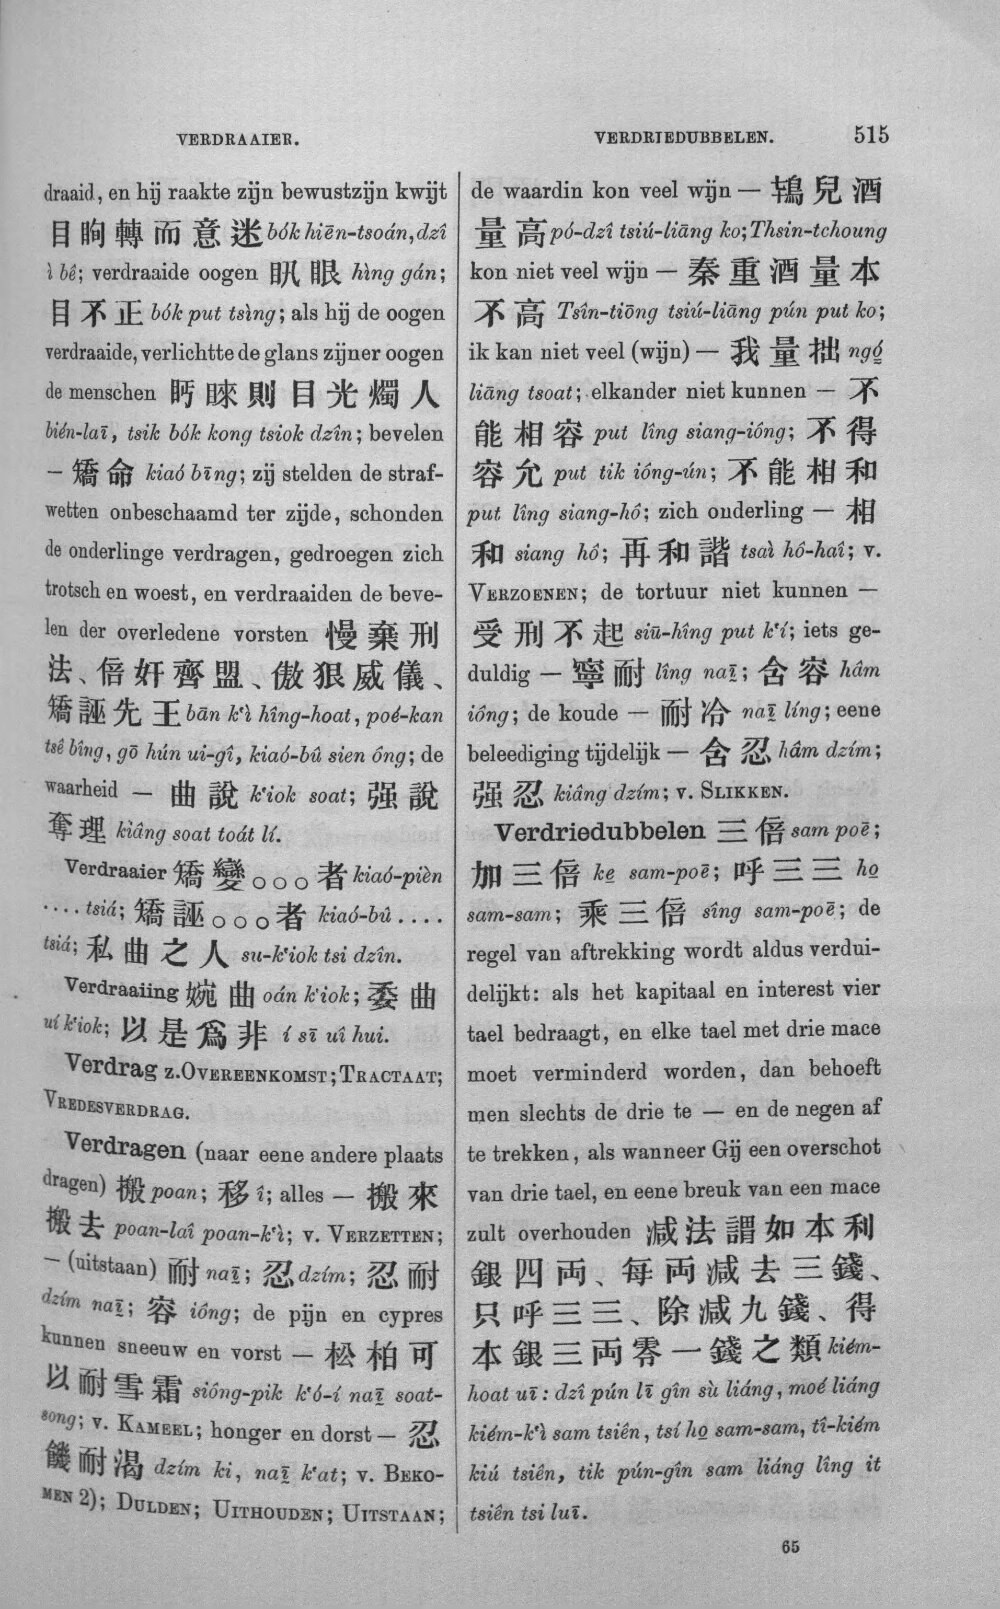 VERDRAAIER.
VERDRIEDUBBELEN.
515
draaid, en hij raakte zijn bewustzijn kwijt
目眴轉而意迷 bók hiēn-tsoán, dzî
ì bê; verdraaide oogen 眼 hìng gán;
目不正 bók put tsìng; als hij de oogen
verdraaide, verlichtte de glans zijner oogen
de menschen 眄睞則目光燭人
bién-laī, tsik bók kong tsiok dzîn; bevelen
— 矯命 kiaó bīng; zij stelden de straf-
wetten onbeschaamd ter zijde, schonden
de onderlinge verdragen, gedroegen zich
trotsch en woest, en verdraaiden de beve-
len der overledene vorsten 慢棄刑
法、倍奸齊盟、傲狠威儀、
矯誣先王 bān k‘ì hîng-hoat, poé-kan
tsê bîng, gō hún ui-gî, kiaó-bû sien ông; de
waarheid — 曲說 k‘iok soat; 强說
奪理 kìâng soat toát lí.
Verdraaier 矯變○○○者 kiaó-pièn
.... tsiá; 矯誣○○○者 kiaó-bû ....
tsiá; 私曲之人 su-k‘iok tsi dzîn.
Verdraaiing 婉曲 oán k‘iok; 委曲
uí k‘iok; 以是爲非 í sī uî hui.
Verdrag z. OVEREENKOMST; TRACTAAT;
VREDESVERDRAG.
Verdragen (naar eene andere plaats
dragen) 搬 poan; 移 î; alles — 搬來
搬去 poan-laî poan-k‘ì; v. VERZETTEN;
— (uitstaan) 耐 naī; 忍 dzím; 忍耐
dzím naī; 容 iông; de pijn en cypres
kunnen sneeuw en vorst — 松柏可
以耐雪霜 siông-pik k‘ó-í naī soat-
song; v. KAMEEL; honger en dorst — 忍
饑耐渴 dzím ki, naī k‘at; v. BEKO-
MEN 2); DULDEN; UITHOUDEN; UITSTAAN;
de waardin kon veel wijn — 鴇兒酒
量高 pó-dzî tsiú-liāng ko; Thsin-tchoung
kon niet veel wijn — 秦重酒量本
不高 Tsîn-tiōng tsiú-liāng pún put ko;
ik kan niet veel (wijn) — 我量拙 ngó
liāng tsoat; elkander niet kunnen — 不
能相容 put lîng siang-ióng; 不得
容允 put tik ióng-ún; 不能相和
put lîng siang-hô; zich onderling — 相
和 siang hô; 再和諧 tsaì hô-haî; v.
VERZOENEN; de tortuur niet kunnen —
受刑不起 siū-hîng put k‘í; iets ge-
duldig — 寧耐 lîng naī; 含容 hâm
iông; de koude — 耐冷 naī líng; eene
beleediging tijdelijk — 含忍 hâm dzím;
强忍 kiâng dzím; v. SLIKKEN.
Verdriedubbelen 三倍 sam poē;
加三倍 ke sam-poē; 呼三三 ho
sam-sam; 乘三倍 sîng sam-poē; de
regel van aftrekking wordt aldus verdui-
delijkt: als het kapitaal en interest vier
tael bedraagt, en elke tael met drie mace
moet verminderd worden, dan behoeft
men slechts de drie te — en de negen af
te trekken, als wanneer Gij een overschot
van drie tael, en eene breuk van een mace
zult overhouden 减法謂如本利
銀四両、每両减去三錢、
只呼三三、除减九錢、得
本銀三両零一錢之類 kiém-
hoat uī: dzî pún lī gîn sù liáng, moé liáng
kiém-k‘ì sam tsiên, tsí ho sam-sam, tî-kiém
kiú tsiên, tik pún-gîn sam liáng lîng it
tsiên tsi luī.
65